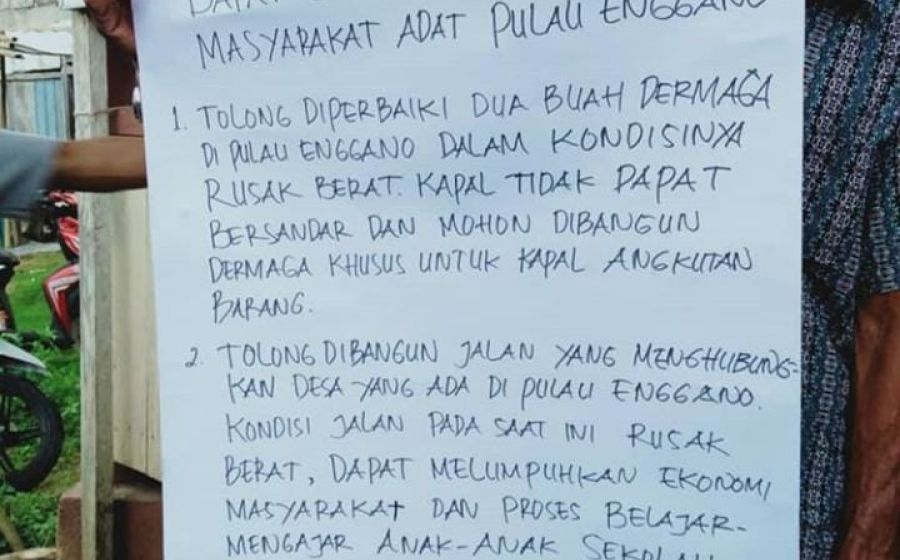 MASYARAKAT ADAT PULAU ENGGANO
1. TOLONG DIPERBAIKI DUA BUAH DERMAGA
DI PULAU ENGGANO DALAM KONDISINYA
RUSAK BERAT. KAPAL TIDAK DAPAT
BERSANDAR DAN MOHON DIBANGUN
DERMAGA KHUSUS UNTUK KAPAL ANGKUTAN
BARANG.
2. TOLONG DIBANGUN JALAN YANG MENGHUBUNG-
KAN DESA YANG ADA DI PULAU ENGGANO.
KONDISI JALAN PADA SAAT INI RUSAK
BERAT, DAPAT MELUMPUHKAN EKONOMI
MASYARAKAT DAN PROSES BELAJAR-
MENGAJAR ANAK-ANAK SEKOLAH